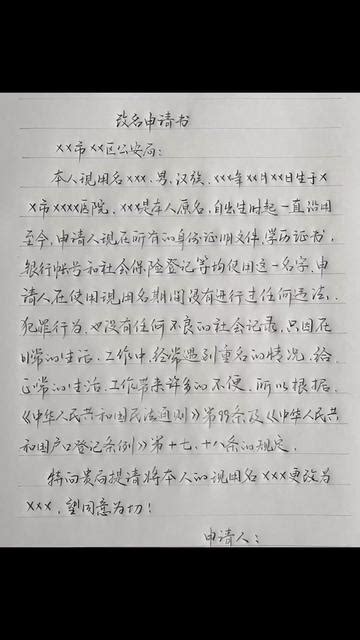 改名申请书
××市××区公安局：
本人现用名×××，男，汉族，××年××月××日生于×
×市××××医院，×××是本人原名，自出生时起一直沿用
至今，申请人现在所有的身份证明文件，学历证书，
银行帐号和社会保险登记等均使用这一名字，申
请人在使用现用名期间没有进行过任何违法、
犯罪行为，也没有任何不良的社会记录，只因在
日常的生活、工作中，经常遇到重名的情况，给
正常的生活、工作带来许多的不便，所以根据
《中华人民共和国民法通则》第99条及《中华人民共
和国户口登记条例》第十七、十八条的规定，
特向贵局提请将本人的现用名×××更改为
×××，望同意为切！
申请人：